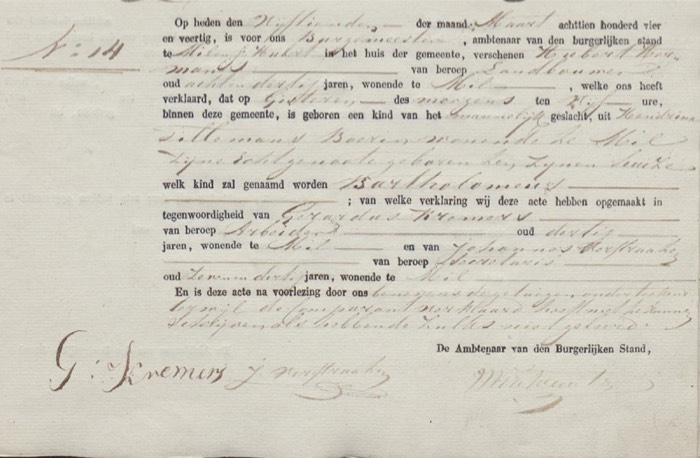 N: 14
Op heden den Vijftienden der maand Maart achttien honderd vier
en veertig, is voor ons Burgemeester, ambtenaar van den burgerlijken stand
te Mill en St Hubert in het huis der gemeente, verschenen Hijbert Her-
mans van beroep Landbouwer
oud achtendertig jaren, wonende te Mil, welke ons heeft
verklaard, dat op Gisteren des morgens ten Vijf ure,
binnen deze gemeente, is geboren een kind van het mannelijk geslacht, uit Hendrina
Boerin wonende te Mil
Zijne Echtgenoote geboren ten Zijnen huize
welk kind zal genaamd worden Bartholomeus
; van welke verklaring wij deze acte hebben opgemaakt in
tegenwoordigheid van Gerardus Kremers
van beroep Arbeider oud dertig
jaren, wonende te Mil en van Johannes Verstraaten
van beroep Secretaris
oud Zevenendertig jaren, wonende te Mil
En is deze acte na voorlezing door ons benevens de getuigen onderteekend
terwijl de Comparant verklaard heeft niet te kunnen
schrijven als hebbende zulks niet geleerd
De Ambtenaar van den Burgerlijken Stand,
G: Kremers J Verstraaten